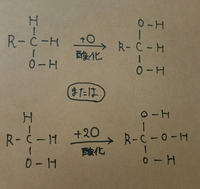 H
R-C-H
O-H
+O
酸化
O-H
R-C-H
O-H
または
H
R-C-H
O-H
+2O
酸化
O-H
R-C-O-H
O-H